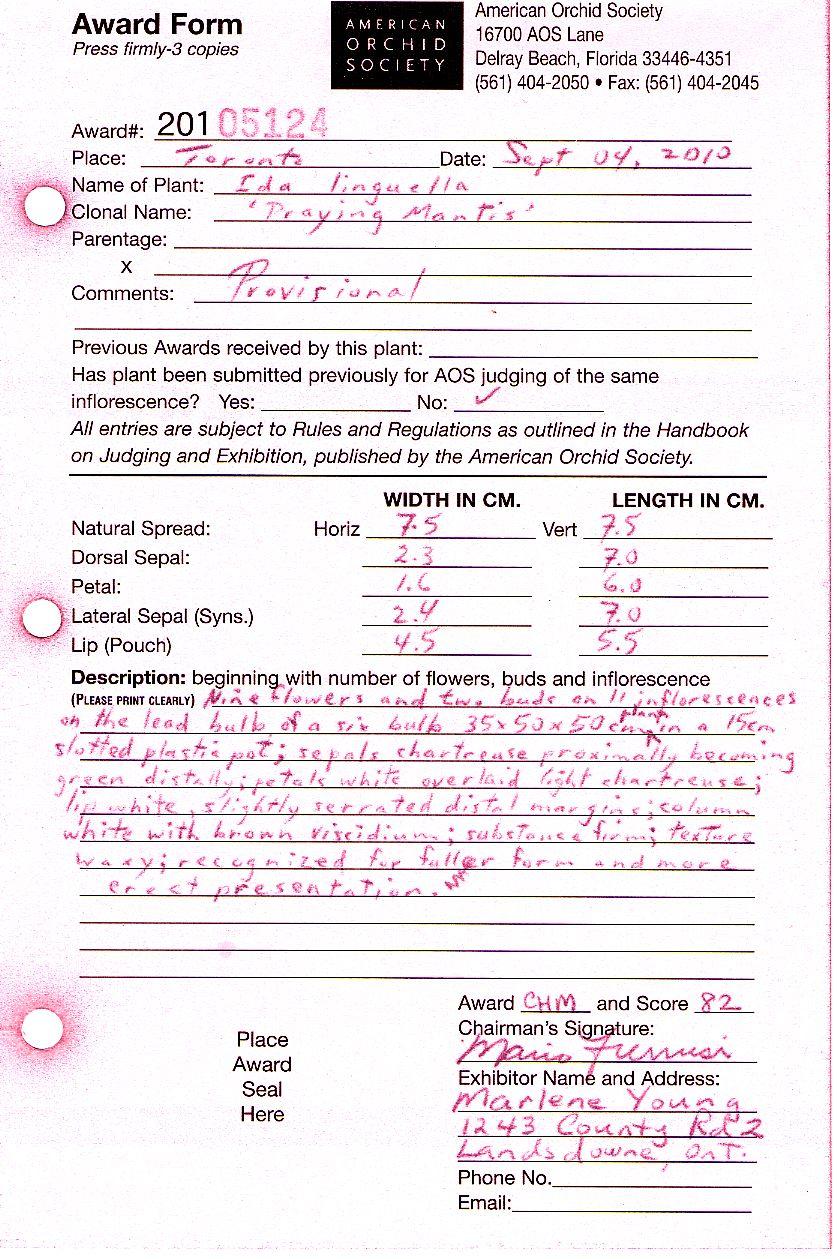 Award Form
Press firmly-3 copies
AMERICAN
ORCHID
SOCIETY
American Orchid Society
16700 AOS Lane
Delray Beach, Florida 33446-4351
(561) 404-2050 • Fax: (561) 404-2045
Award#: 20105124
Place: Toronto Date: Sept 04, 2010
Name of Plant: Ida linguella
Clonal Name: 'Praying Mantis'
Parentage:
X
Comments: Provisional
Previous Awards received by this plant:
Has plant been submitted previously for AOS judging of the same
inflorescence? Yes: No: ✓
All entries are subject to Rules and Regulations as outlined in the Handbook
on Judging and Exhibition, published by the American Orchid Society.
WIDTH IN CM. LENGTH IN CM.
Natural Spread: Horiz 7.5 Vert 7.5
Dorsal Sepal: 2.3 7.0
Petal: 1.6 6.0
Lateral Sepal (Syns.) 2.4 7.0
Lip (Pouch) 4.5 5.5
Description: beginning with number of flowers, buds and inflorescence
(PLEASE PRINT CLEARLY) Nine flowers and two buds on 11 inflorescences
on the lead bulb of a six bulb 35x50x50cm plant in a 15cm
slotted plastic pot; sepals chartreuse proximally becoming
green distally; petals white overlaid light chartreuse;
lip white, slightly serrated distal margins; column
white with brown viscidium; substance firm; texture
waxy; recognized for fuller form and more
erect presentation.
Award CHM and Score 82
Chairman's Signature:
Place
Award
Seal
Here
Mario
Exhibitor Name and Address:
Marlene Young
1243 County Rd 2
Landsdowne, ONT.
Phone No.
Email: